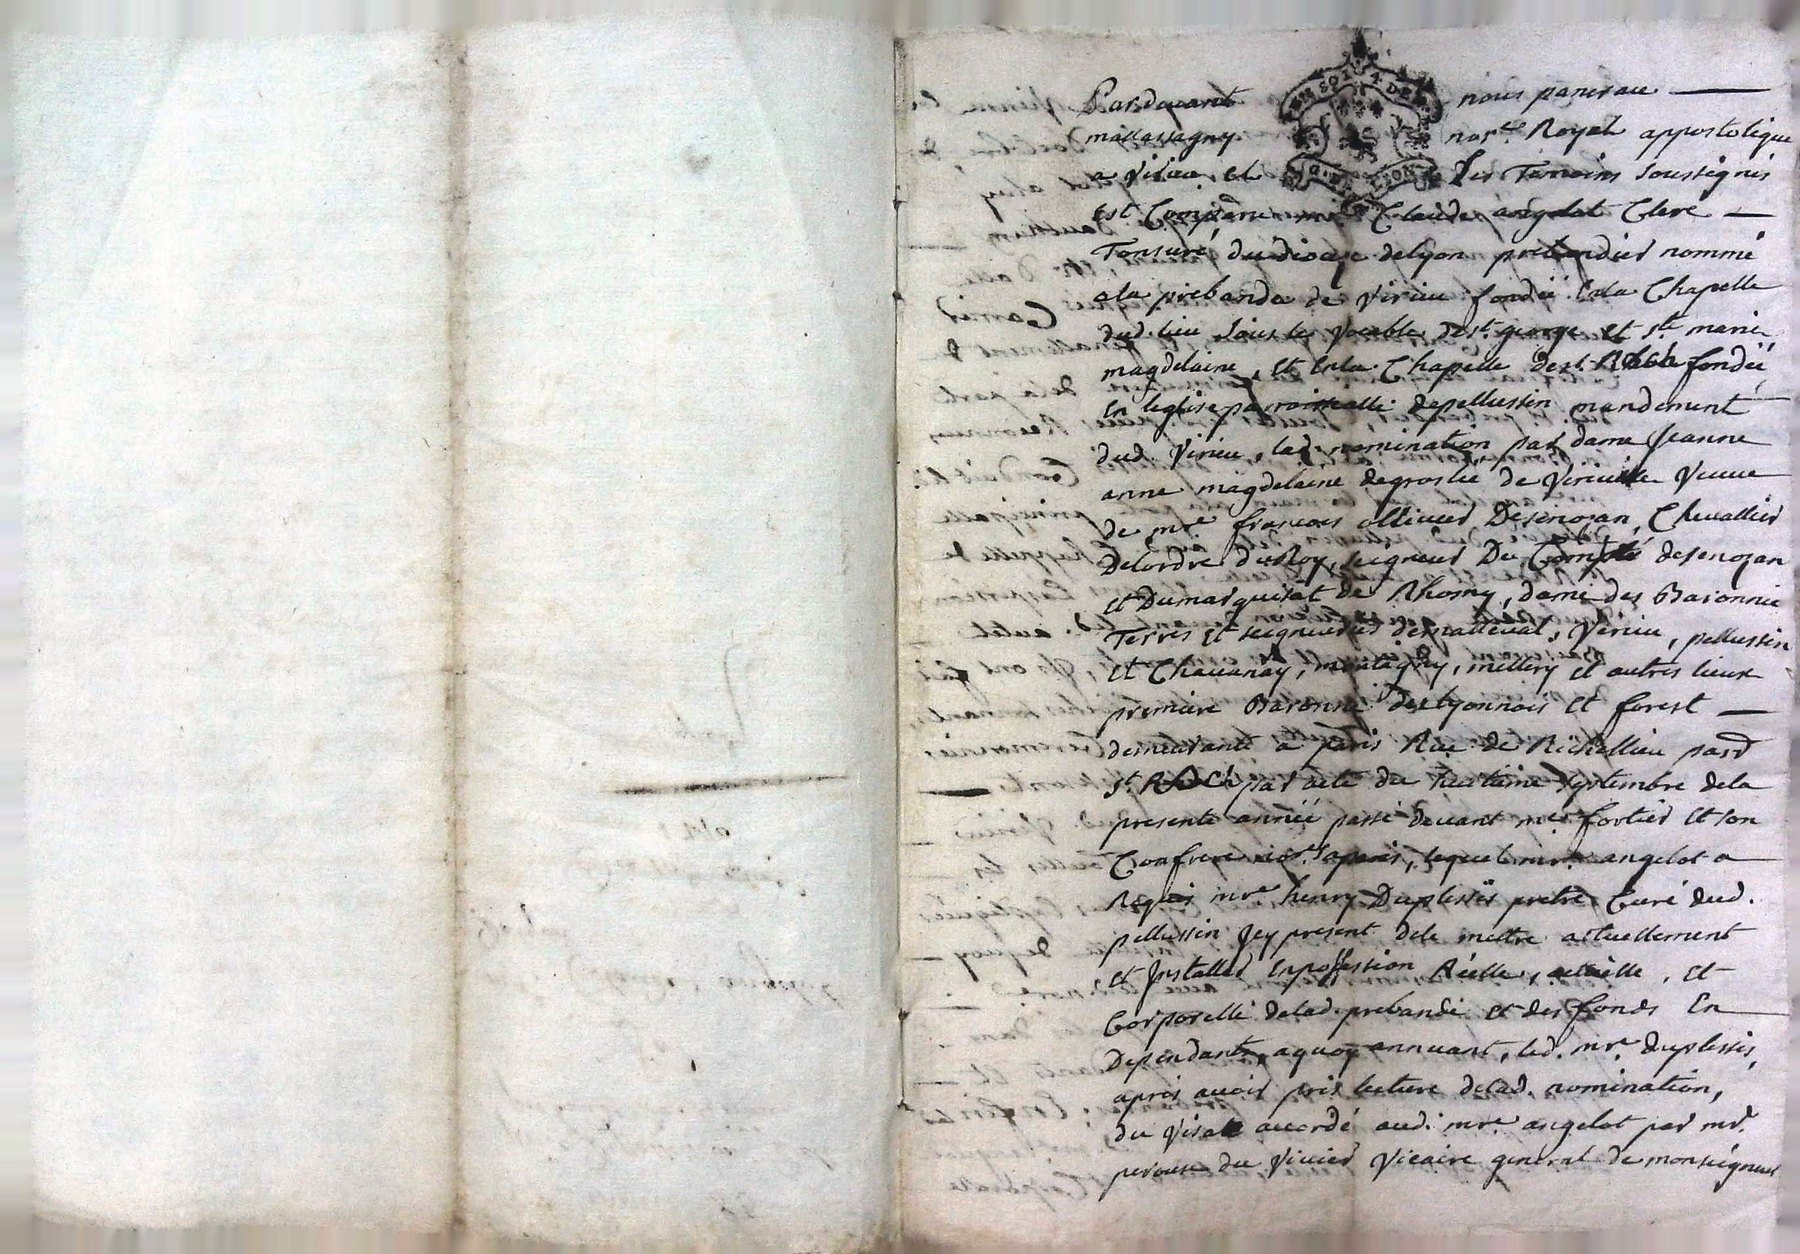 Pardevant nous
mallassagny not.re Royal appostolique
a Virieu et les Temoins soussignés
est Comparu mre Claude angelot Clerc
Tonsuré du diocese delyon prebendier nommé
ala prebande de Virieu fondée En la Chapelle
dud. lieu sous le vocable de st. george et ste marie
magdelaine, et Enla Chapelle de st. Roch fondée
En leglise parroissialle depellussin mandement
dud. Virieu, lad. nomination par dame Jeanne
anne magdelaine degrolée de Viriville Veuve
de mre francois ollivier Desenozan, Chevallier
Delordre du Roy, seigneur Du Compté desenozan
et Dumarquisat de Rhosny, dame des Baronnie
Terres et seigneuries demalleval, Virieu, pellussin
et Chavanay, montagny, millery et autres lieux
premiere Baronne des lyonnois et forest
demeurante a paris Rue de Richellieu par.
st. Roch par acte du huitieme septembre dela
presente année passé devant me fortier et son
Confrere nores aparis, lequel mre angelot a
Requis mre henry Duplessis pretre Curé dud.
pellussin Jcy present dele mettre actuellement
et Jnstaller Enpossession Réelle, actuelle, et
Corporelle delad. prebande et des fonds En
Dependants, aquoy annuant, led. mre duplessis,
apres avoir pris lecture delad. nomination,
du Visat accordé aud. mre angelot par mr.
du Vivier Vicaire general de monseigneur